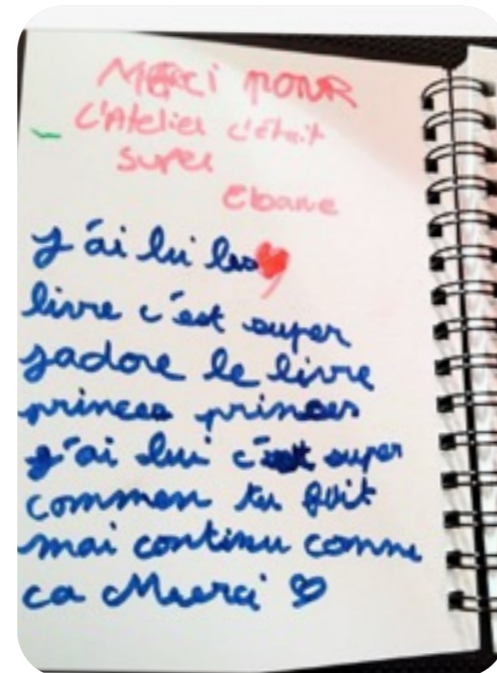 MERCI POUR
L'Atelier c'était
super
Ebane
J'ai lui les
livre c'est super
jadore le livre
princes princes
j'ai lui c'est super
commen tu fuit
mai continu comme
ca Merci